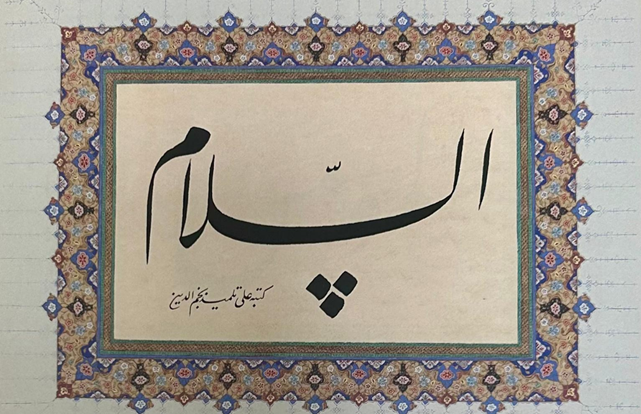 السّلام
کتبه علی تلمیذ نجم الدین